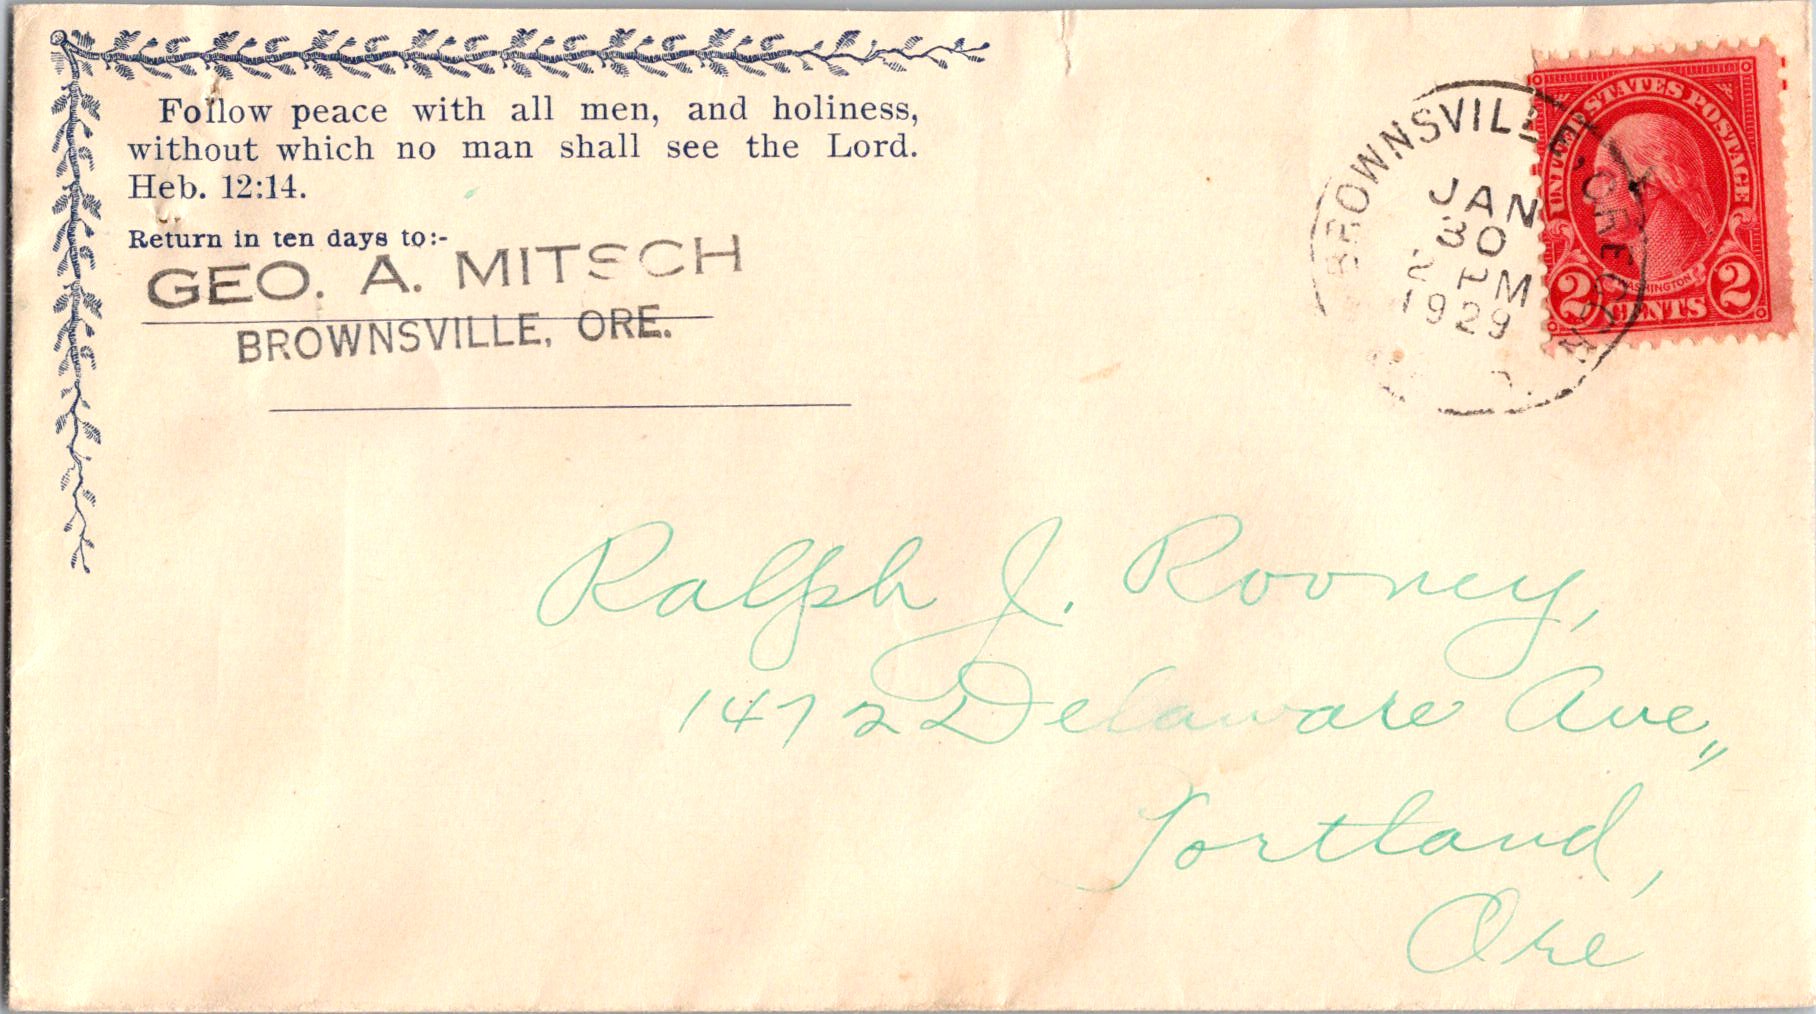 Follow peace with all men, and holiness,
without which no man shall see the Lord.
Heb. 12:14.
Return in ten days to:-
GEO. A. MITSCH
BROWNSVILLE, ORE.
BROWNSVILLE, OREGON
JAN
30
2 PM
1929
UNITED STATES POSTAGE
WASHINGTON
2 CENTS 2
Ralph J. Rooney,
1472 Delaware Ave.,
Portland,
Ore